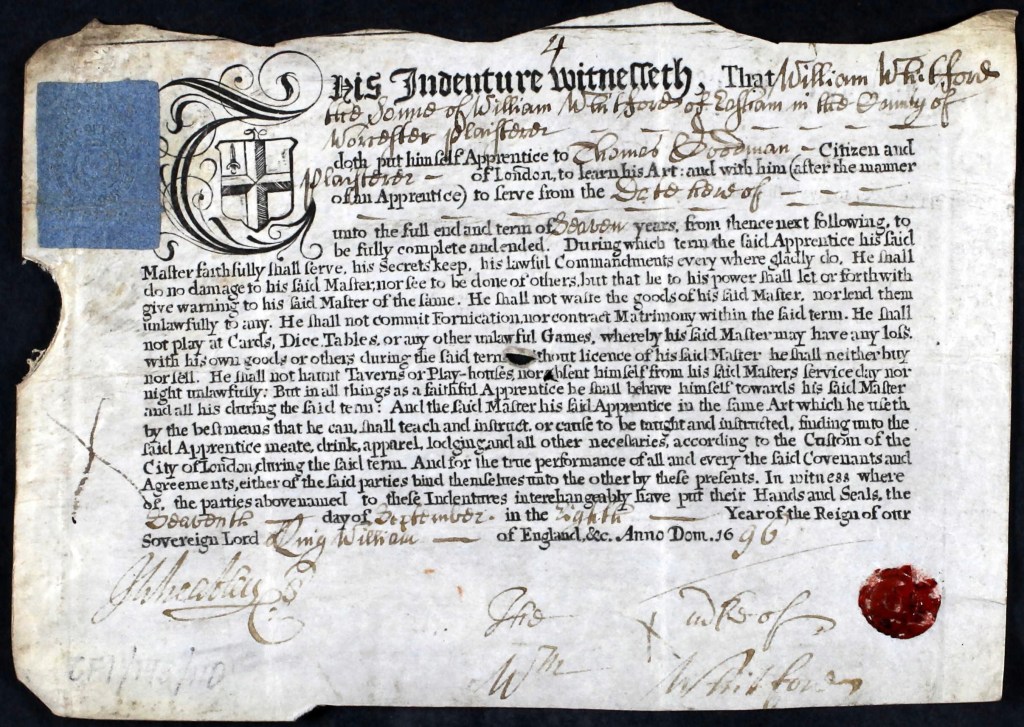 4
This Indenture Witnesseth, That William Whitford
the Sonne of William Whitford of in the County of
Worcester Plaisterer
doth put himself Apprentice to Thomas Goodman Citizen and
Plaisterer of London, to learn his Art: and with him (after the manner
of an Apprentice) to serve from the Date hereof
unto the full end and term of Seaven years, from thence next following, to
be fully complete and ended. During which term the said Apprentice his said
Master faithfully shall serve, his Secrets keep, his lawful Commandments every where gladly do, He shall
do no damage to his said Master, nor see to be done of others, but that he to his power shall let or forthwith
give warning to his said Master of the same. He shall not waste the goods of his said Master, nor lend them
unlawfully to any. He shall not commit Fornication, nor contract Matrimony within the said term. He shall
not play at Cards, Dice, Tables, or any other unlawful Games, whereby his said Master may have any loss.
with his own goods or others during the said term without licence of his said Master he shall neither buy
nor sell. He shall not haunt Taverns or Play-houses, nor absent himself from his said Masters service day nor
night unlawfully: But in all things as a faithful Apprentice he shall behave himself towards his said Master
and all his during the said term: And the said Master his said Apprentice in the same Art which he useth
by the best means that he can, shall teach and instruct, or cause to be taught and instructed, finding unto the
said Apprentice meate, drink, apparel, lodging and all other necessaries, according to the Custom of the
City of London, during the said term. And for the true performance of all and every the said Covenants and
Agreements, either of the said parties bind themselves unto the other by these presents. In witness where
of, the parties abovenamed to these Indentures interchangeably have put their Hands and Seals, the
Seaventh day of September in the Eighth Year of the Reign of our
Sovereign Lord King William of England, &c. Anno Dom. 1696
The marke of
Wm Whitford